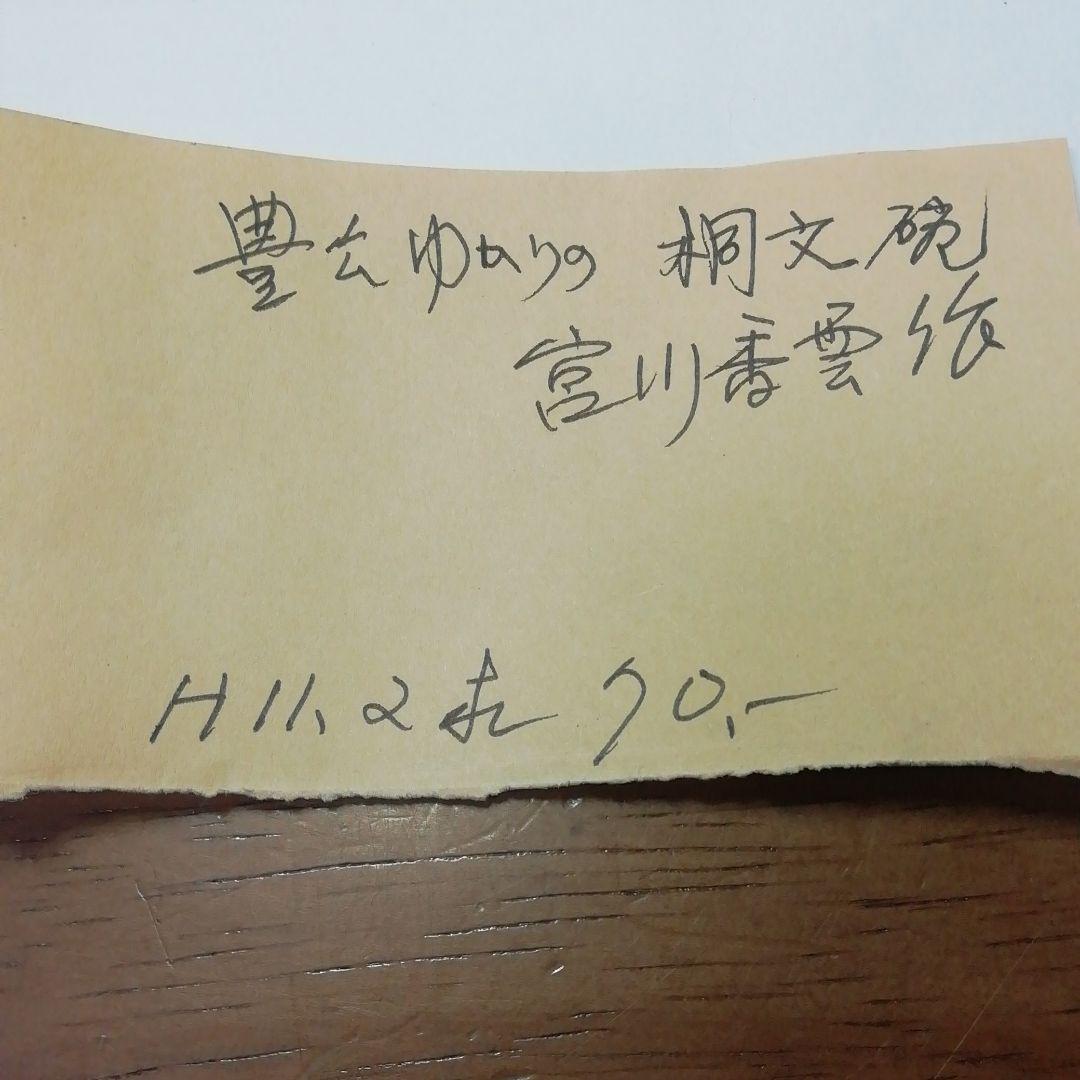 豊公ゆかりの 桐文碗
宮川香雲作
H11.2求 70.-